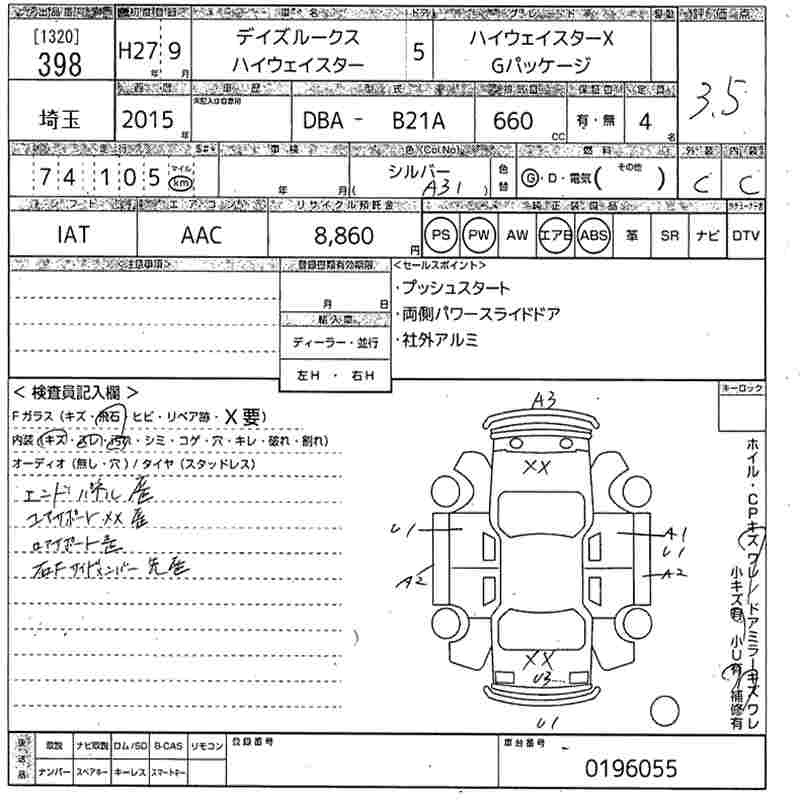 [1320]
398
H27 9
年 月
デイズルークス
ハイウェイスター
5
ハイウェイスターX
Gパッケージ
評価点
3.5
埼玉
2015 年
車歴
型式
DBA - B21A
排気量
660 cc
有・無
定員
4 名
走行
74105
マイル
km
車検
年 月
色(Col.No)
シルバー
( A31 )
色替
燃料
G・D・電気( その他 )
外装
C
内装
C
シフト
IAT
エアコン
AAC
リサイクル預託金
8,860 円
純正装備品
PS PW AW エアB ABS 革 SR ナビ DTV
<注意事項>
登録書類有効期限
月 日
輸入車
ディーラー・並行
左H ・ 右H
<セールスポイント>
・プッシュスタート
・両側パワースライドドア
・社外アルミ
< 検査員記入欄 >
Fガラス(キズ・飛石・ヒビ・リペア跡・X要)
内装(キズ・汚れ・シミ・コゲ・穴・キレ・破れ・割れ)
オーディオ(無し・穴)/タイヤ(スタッドレス)
エンドパネル 歪
コアサポートXX 歪
ロアサポート歪
右Fサイドメンバー 先歪
キーロック
A3
XX
U1
A2
A1
U1
A2
XX
U3
U1
ホイル・CPキズワレ/ドアミラーキズワレ
小キズ有 小U有 補修有
後送品
取説 ナビ取説 ロム/SD B-CAS リモコン
ナンバー スペアキー キーレス スマートキー
登録番号
車台番号
0196055